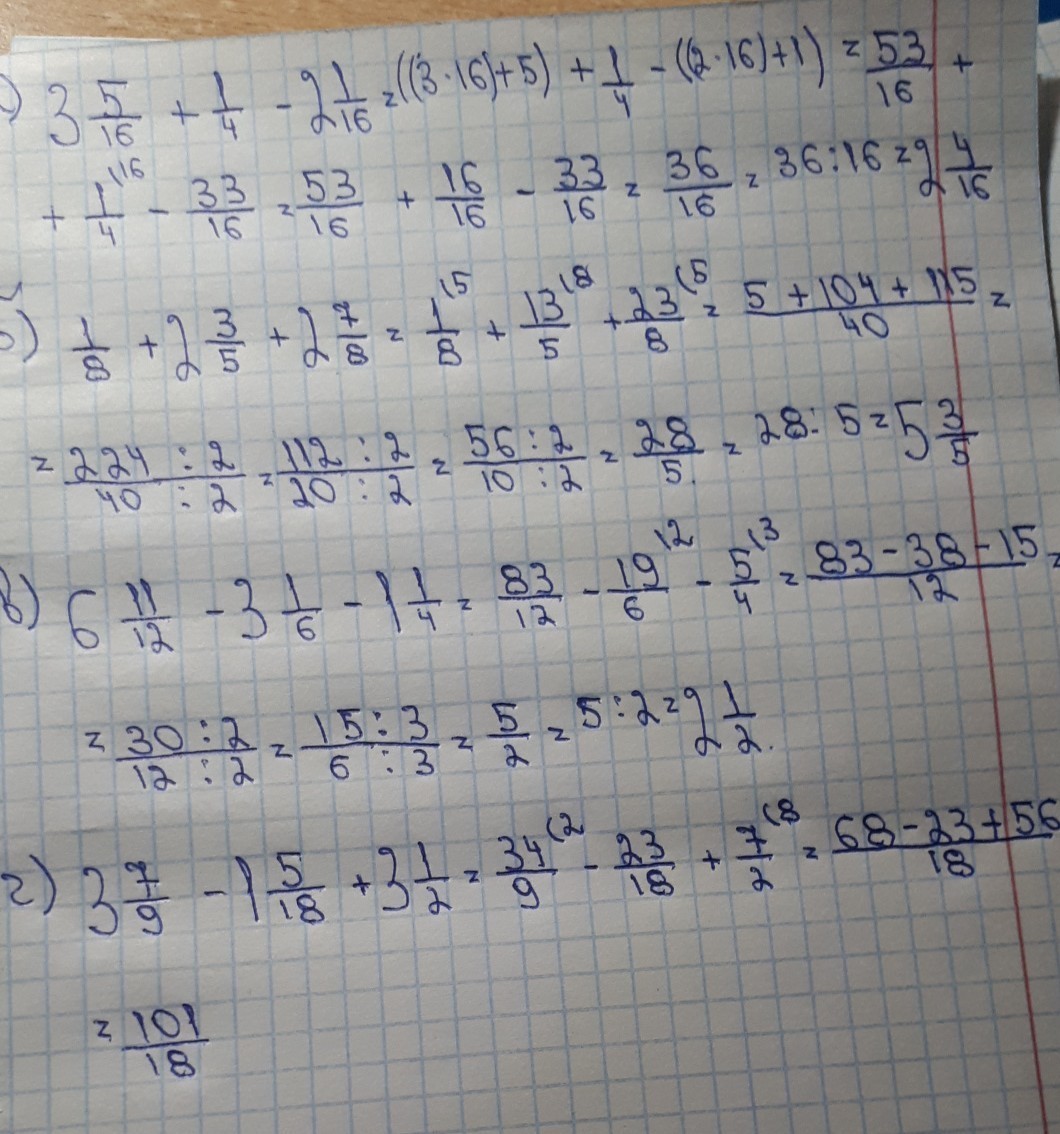 ) 3 5/16 + 1/4 - 2 1/16 = ((3·16)+5) + 1/4 - ((2·16)+1) = 53/16 +
+ 1/4 (16 - 33/16 = 53/16 + 16/16 - 33/16 = 36/16 = 36:16 = 2 4/16
б) 1/8 + 2 3/5 + 2 7/8 = 1/8 (5 + 13/5 (8 + 23/8 (5 = 5+104+115/40 =
= 224:2/40:2 = 112:2/20:2 = 56:2/10:2 = 28/5 = 28:5 = 5 3/5
в) 6 11/12 - 3 1/6 - 1 1/4 = 83/12 - 19/6 (2 - 5/4 (3 = 83-38-15/12 =
= 30:2/12:2 = 15:3/6:3 = 5/2 = 5:2 = 2 1/2.
г) 3 7/9 - 1 5/18 + 3 1/2 = 34/9 (2 - 23/18 + 7/2 (8 = 68-23+56/18
= 101/18